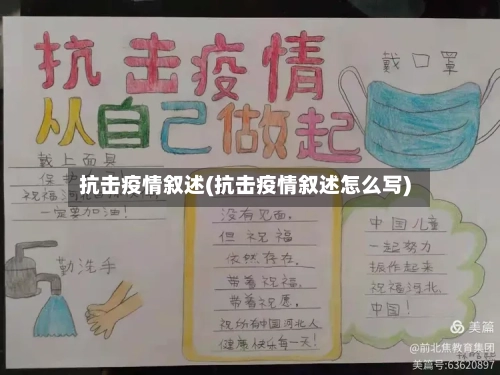 抗击疫情
从自己做起
戴口罩
戴上面具
抗击疫情叙述(抗击疫情叙述怎么写)
一定要加油!
勤洗手
没有见面,
但祝福
依然存在,
带着祝福,
带着祝愿,
祝所有中国河北人
健康快乐每一天!
中国儿童
一起努力
振作起来
祝福河北、
中国!
美篇
@前北焦教育集团
美篇号:63620897